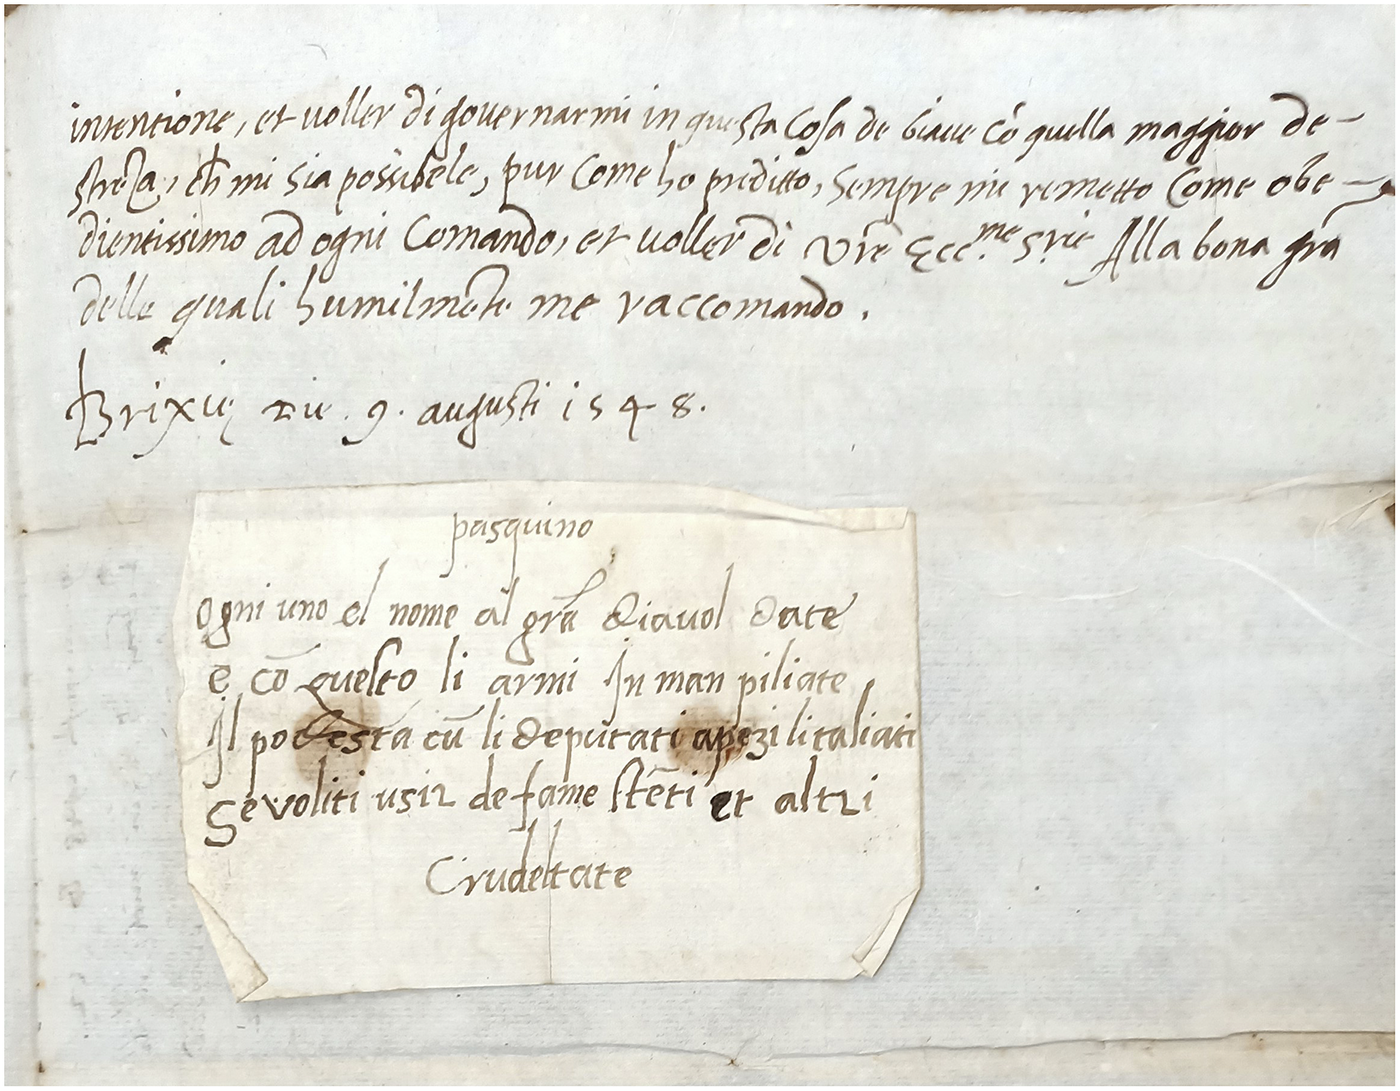 intentione, et voller di governarmi in questa cosa de biave cō quella maggior de-
streza, ch̄ mi sia possibele, pur come ho preditto, sempre mi remetto come obe-
dientissimo ad ogni comando, et voller di Vr̄e Ecc.me S.rie Alla bona gr̄a
delle quali humilmēte me raccomando.
Brixię Die 9. augusti 1548.
pasquino
ogni uno el nome al grā diavol date
e cō questo li armi In man piliate
Il podestà cū li deputati a pezi li taliati
Se voliti usir de fame stēti et altri
Crudeltate